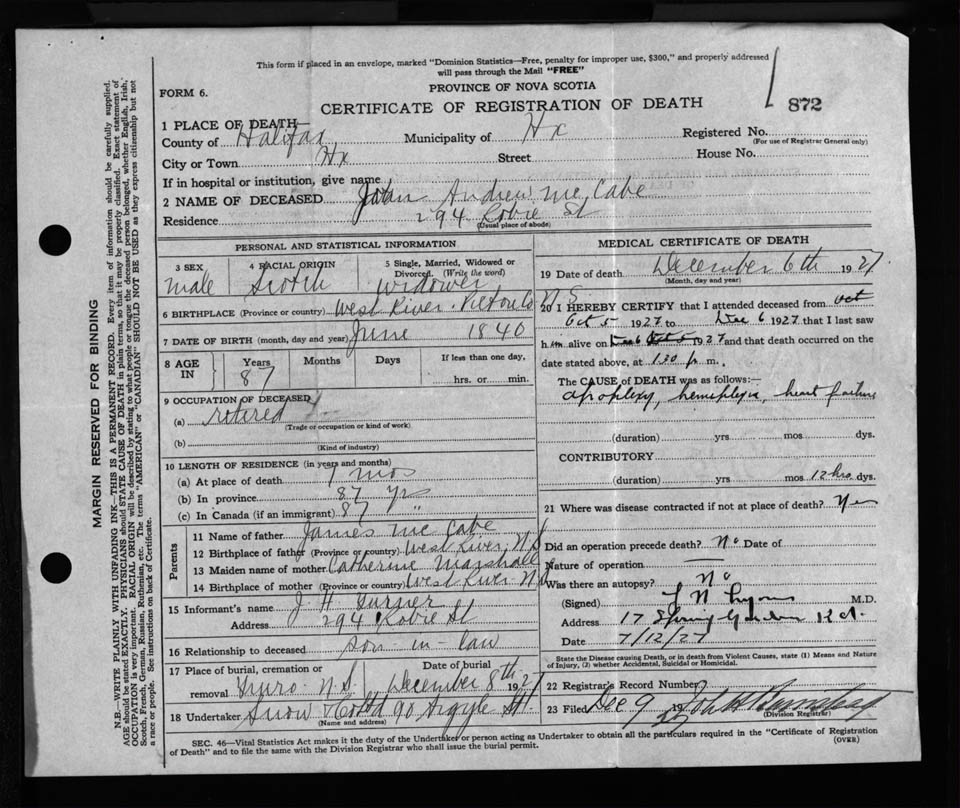 This form if placed in an envelope, marked "Dominion Statistics—Free, penalty for improper use, $300," and properly addressed
will pass through the Mail "FREE"
PROVINCE OF NOVA SCOTIA
FORM 6.
CERTIFICATE OF REGISTRATION OF DEATH
872
1 PLACE OF DEATH
County of Halifax Municipality of Hx Registered No.
(For use of Registrar General only)
City or Town Hx Street House No.
If in hospital or institution, give name
2 NAME OF DECEASED John Andrew McCabe
Residence 294 Robie St
(Usual place of abode)
PERSONAL AND STATISTICAL INFORMATION
3 SEX 4 RACIAL ORIGIN 5 Single, Married, Widowed or Divorced. (Write the word)
male Scotch widower
6 BIRTHPLACE (Province or country) West River Pictou Co N.S
7 DATE OF BIRTH (month, day and year) June 1840
8 AGE IN Years Months Days If less than one day,
87 hrs. or min.
9 OCCUPATION OF DECEASED
(a) retired
(Trade or occupation or kind of work)
(b)
(Kind of industry)
10 LENGTH OF RESIDENCE (in years and months)
(a) At place of death 7 mos
(b) In province 87 yrs
(c) In Canada (if an immigrant) 87 "
Parents
11 Name of father James McCabe
12 Birthplace of father (Province or country) West River, N.S
13 Maiden name of mother Catherine Marshall
14 Birthplace of mother (Province or country) West River N.S
15 Informant's name J. H. Turner
Address 294 Robie St
16 Relationship to deceased son-in-law
17 Place of burial, cremation or removal Date of burial
Truro N.S. December 8th 1927
18 Undertaker Snow & Co Ltd 90 Argyle St
(Name and address)
MEDICAL CERTIFICATE OF DEATH
19 Date of death December 6th 1927
(Month, day and year)
20 I HEREBY CERTIFY that I attended deceased from Oct
Oct 5 1927 to Dec 6 1927 that I last saw
him alive on Dec 6 1927 and that death occurred on the
date stated above, at 1.30 p.m.
The CAUSE OF DEATH was as follows:—
apoplexy, hemiplegia, heart failure
(duration) yrs mos dys.
CONTRIBUTORY
(duration) yrs mos 12 hrs dys.
21 Where was disease contracted if not at place of death? Yes
Did an operation precede death? No Date of
Nature of operation —
Was there an autopsy? No
(Signed) M.D.
Address 17 Spring Garden Rd.
Date 7/12/27
State the Disease causing Death, or in death from Violent Causes, state (1) Means and Nature
of Injury, (2) whether Accidental, Suicidal or Homicidal.
22 Registrar's Record Number
23 Filed Dec 9 1927
(Division Registrar)
SEC. 46—Vital Statistics Act makes it the duty of the Undertaker or person acting as Undertaker to obtain all the particulars required in the "Certificate of Registration
of Death" and to file the same with the Division Registrar who shall issue the burial permit.
(OVER)
MARGIN RESERVED FOR BINDING
N.B.—WRITE PLAINLY WITH UNFADING INK—THIS IS A PERMANENT RECORD. Every item of information should be carefully supplied.
AGE should be stated EXACTLY. PHYSICIANS should STATE CAUSE OF DEATH in plain terms, so that it may be properly classified. Exact statement of
OCCUPATION is very important. RACIAL ORIGIN will be described by stating to what people or tongue the deceased person belonged, whether English, Irish,
Scotch, French, German, Russian, Ruthenian, etc. The terms "AMERICAN" or "CANADIAN" SHOULD NOT BE USED as they express citizenship but not
a race or people. See instructions on back of Certificate.